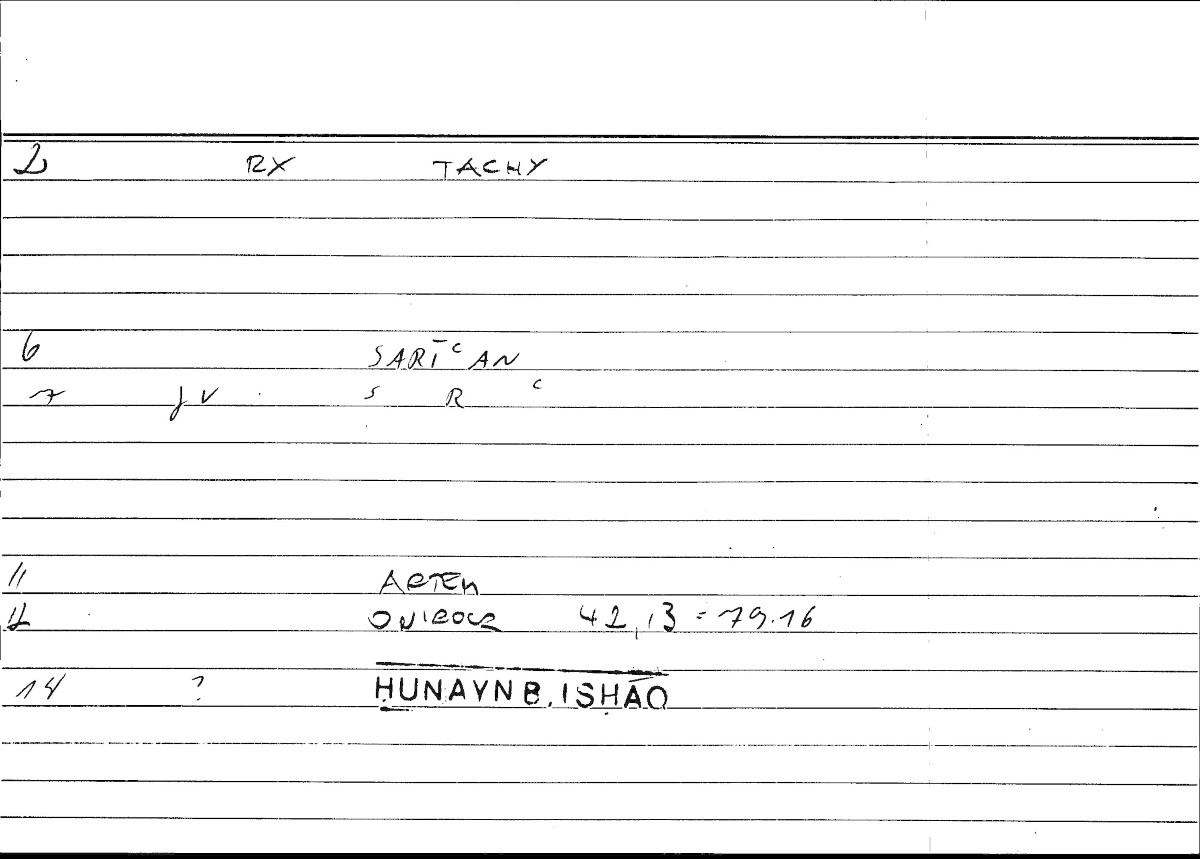 2 RX TACHY
6 SARĪʿAN
7 JV S R ʿ
11 ARTEM
12 ONIROCR 42,13 = 79.16
14 ? ḤUNAYN B. ISḤĀQ